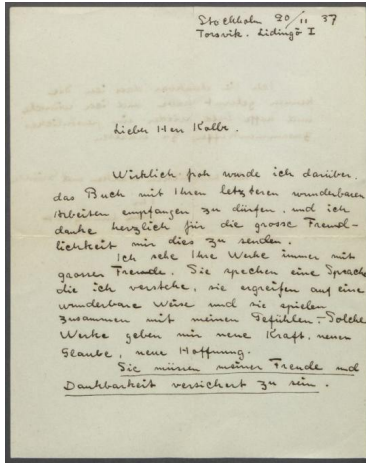 Stockholm 20/11 37
Torsvik. Lidingö I
Lieber Herr Kolbe.
Wirklich froh wurde ich darüber,
das Buch mit Ihren letzteren wunderbaren
Arbeiten empfangen zu dürfen, und ich
danke herzlich für die grosse Freund-
lichkeit mir dies zu senden.
Ich sehe Ihre Werke immer mit
grosser Freude. Sie sprechen eine Sprache
die ich verstehe, sie ergreifen auf eine
wunderbare Weise und sie spielen
zusammen mit meinen Gefühlen. – Solche
Werke geben mir neue Kraft, neuen
Glaube, neue Hoffnung.
Sie müssen meiner Freude und
Dankbarkeit versichert zu sein.